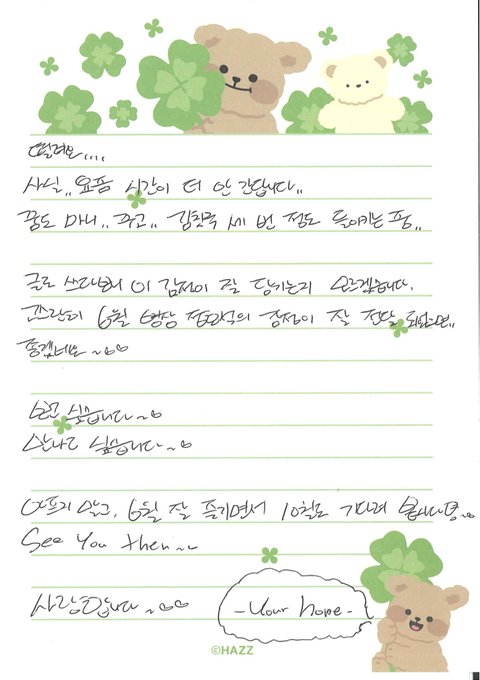 떨려요....
사실.. 요즘 시간이 더 안 간답니다..
꿈도 마니.. 꾸고.. 김칫국 세 번 정도 들이키는 중..
글로 쓰다보니 이 감정이 잘 담기는지 모르겠습니다.
6월 감정이 잘 전달 되었으면..
좋겠네요~
보고 싶습니다~
만나고 싶습니다~
아프지 말고, 6월 잘 즐기면서 10월도 기다려 봅시다
See You then~
사랑합니다~
-Your hope-
©HAZZ